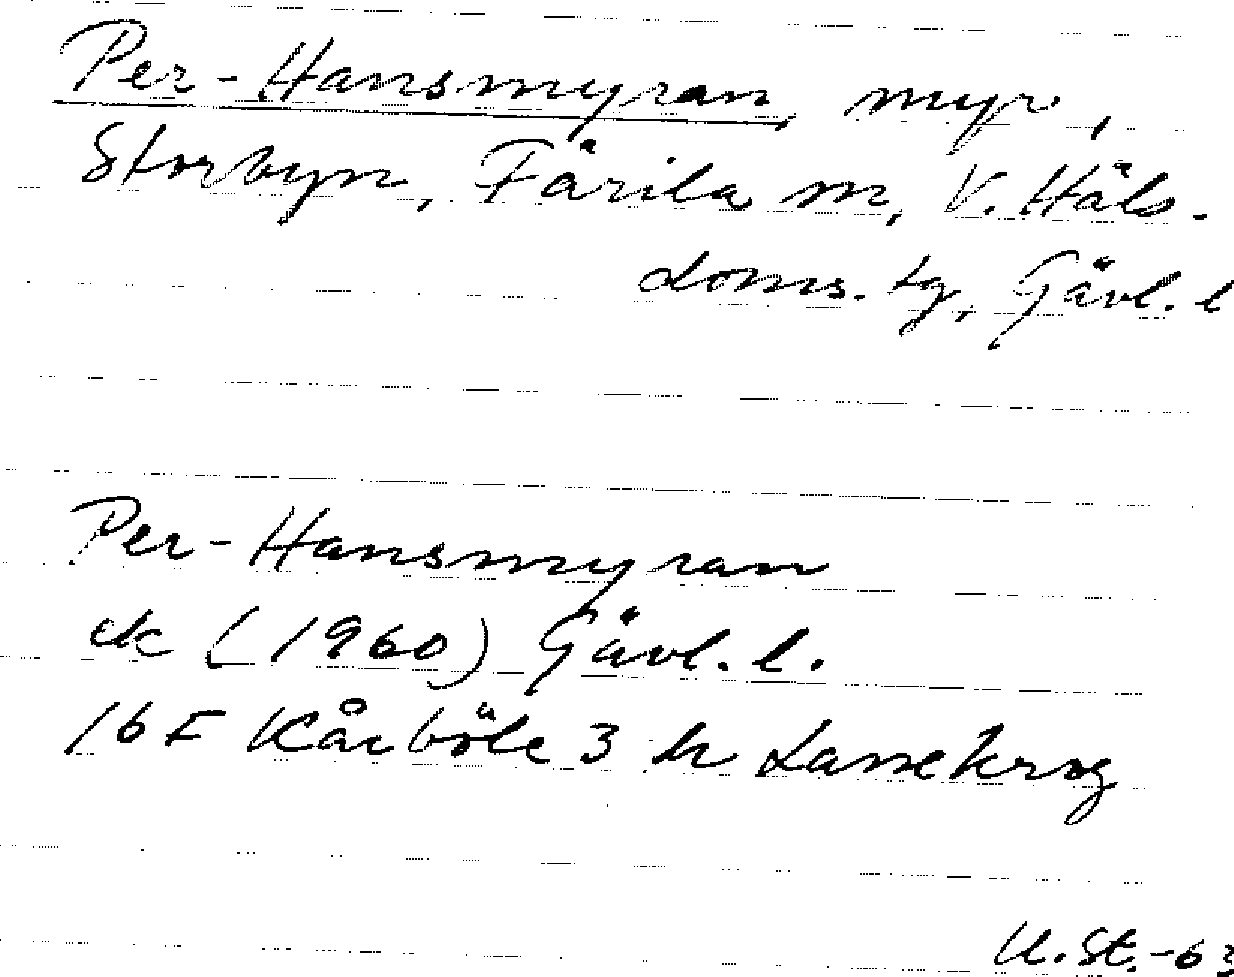 Per-Hansmyran, myr,
Storbyn, Färila sn, V. Häls.
doms. tg, Gävl. l
Per-Hansmyran
ek (1960) Gävl. l.
16 F Kårböle 3 h Lassekrog
U.St.-63